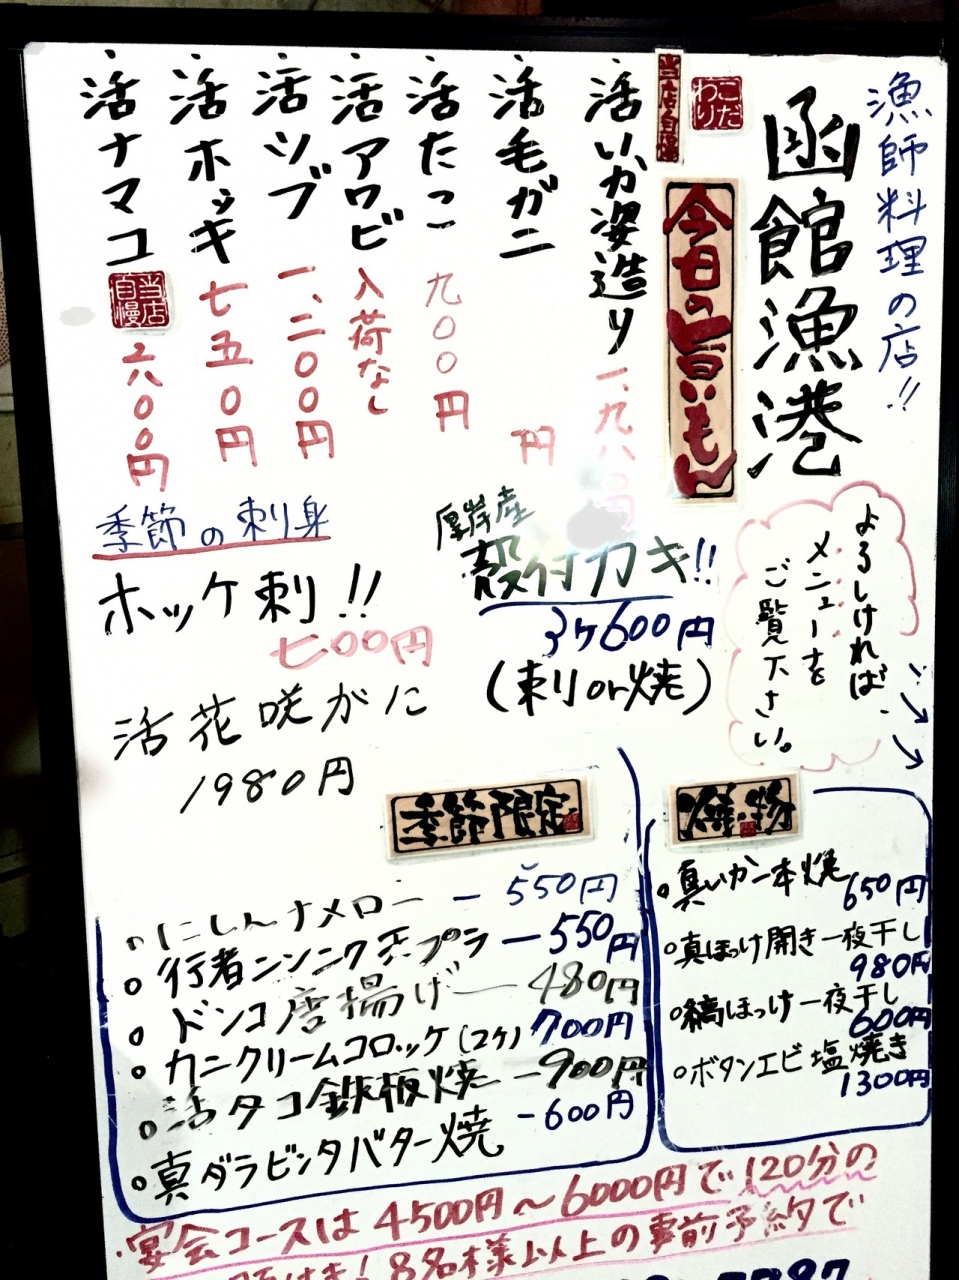 漁師料理の店!!
函館漁港
こだわり
当店自慢
今日の旨いもん
活いか姿造り 一、九八〇円
活毛ガニ 円
活たこ 九〇〇円
活アワビ 入荷なし
活ツブ 一、二〇〇円
活ホッキ 七五〇円
活ナマコ 当店自慢 六〇〇円
よろしければ
メニューを
ご覧下さい。
厚岸産
殻付カキ!!
3ヶ600円
(刺or焼)
季節の刺身
ホッケ刺!!
七00円
活花咲がに
1980円
季節限定
にしんナメロー ー 550円
行者ンンニク天プラ ー 550円
ドンコ唐揚げ ー 480円
カニクリームコロッケ(2ケ) 700円
活タコ鉄板焼 ー 900円
真ダラビンタバター焼 - 600円
焼物
真いか一本焼 650円
真ほっけ開き一夜干し
980円
縞ほっけ一夜干し
600円
ボタンエビ塩焼き
1300円
宴会コースは4500円〜6000円で120分の
8名様以上の事前予約で